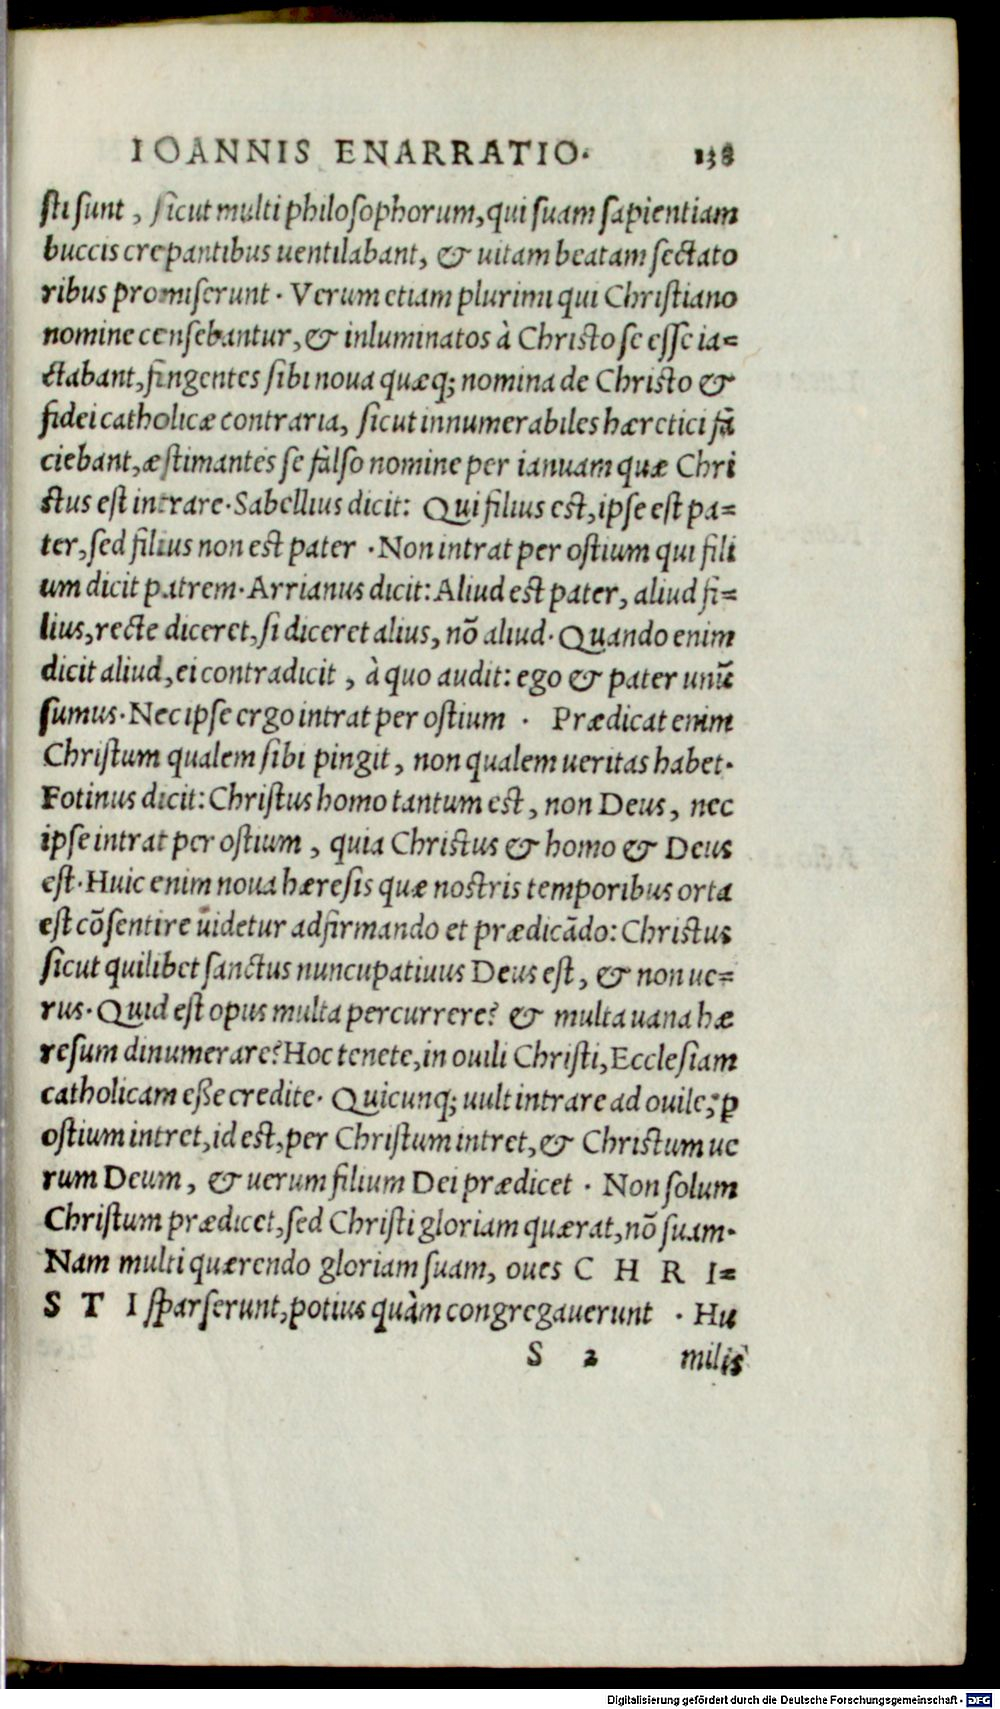 IOANNIS ENARRATIO. 138
sti sunt, sicut multi philosophorum, qui suam sapientiam
buccis crepantibus uentilabant, & uitam beatam sectato
ribus promiserunt. Verum etiam plurimi qui Christiano
nomine censebantur, & inluminatos à Christo se esse ia=
ctabant, fingentes sibi noua quæq; nomina de Christo &
fidei catholicæ contraria, sicut innumerabiles hæretici fa
ciebant, æstimantes se fàlso nomine per ianuam quæ Chri
stus est intrare. Sabellius dicit: Qui filius est, ipse est pa=
ter, sed filius non est pater. Non intrat per ostium qui fili
um dicit patrem. Arrianus dicit: Aliud est pater, aliud fi=
lius, recte diceret, si diceret alius, nõ aliud. Quando enim
dicit aliud, ei contradicit, à quo audit: ego & pater unũ
sumus. Nec ipse ergo intrat per ostium. Prædicat enim
Christum qualem sibi pingit, non qualem ueritas habet.
Fotinus dicit: Christus homo tantum est, non Deus, nec
ipse intrat per ostium, quia Christus & homo & Deus
est. Huic enim noua hæresis quæ nostris temporibus orta
est cõsentire uidetur adfirmando et prædicãdo: Christus
sicut quilibet sanctus nuncupatiuus Deus est, & non ue=
rus. Quid est opus multa percurrere? & multa uana hæ
resum dinumerare? Hoc tenete, in ouili Christi, Ecclesiam
catholicam eße credite. Quicunq; uult intrare ad ouile, ꝑ
ostium intret, id est, per Christum intret, & Christum ue
rum Deum, & uerum filium Dei prædicet. Non solum
Christum prædicet, sed Christi gloriam quærat, nõ suam.
Nam multi quærendo gloriam suam, oues C H R I=
S T I sparserunt, potius quàm congregauerunt. Hu
S 2 milis
Digitalisierung gefördert durch die Deutsche Forschungsgemeinschaft - DFG